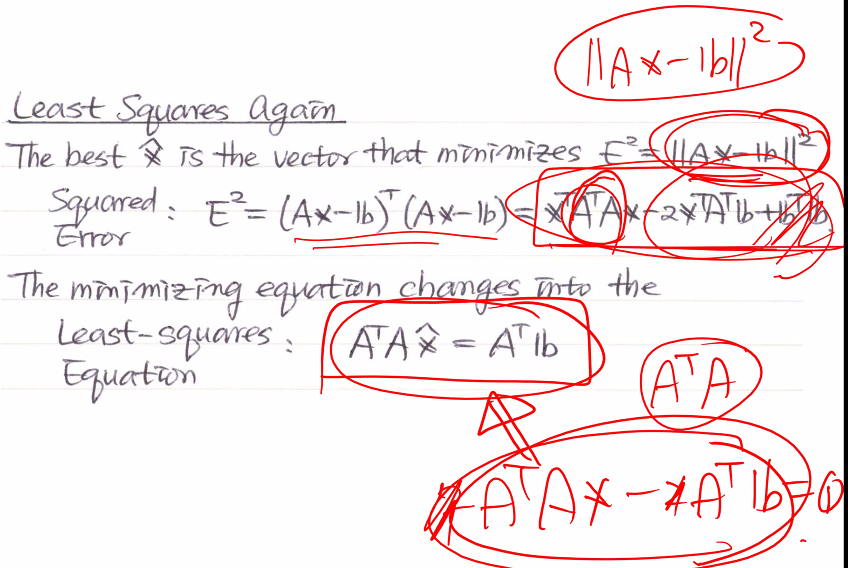 ||Ax-b||²
Least Squares Again
The best x̂ is the vector that minimizes E² = ||Ax-b||²
Squared Error : E² = (Ax-b)ᵀ(Ax-b) = xᵀAᵀAx-2xᵀAᵀb+bᵀb.
The minimizing equation changes into the
Least-squares Equation : AᵀAx̂ = Aᵀb
AᵀA
AᵀAx - Aᵀb = 0